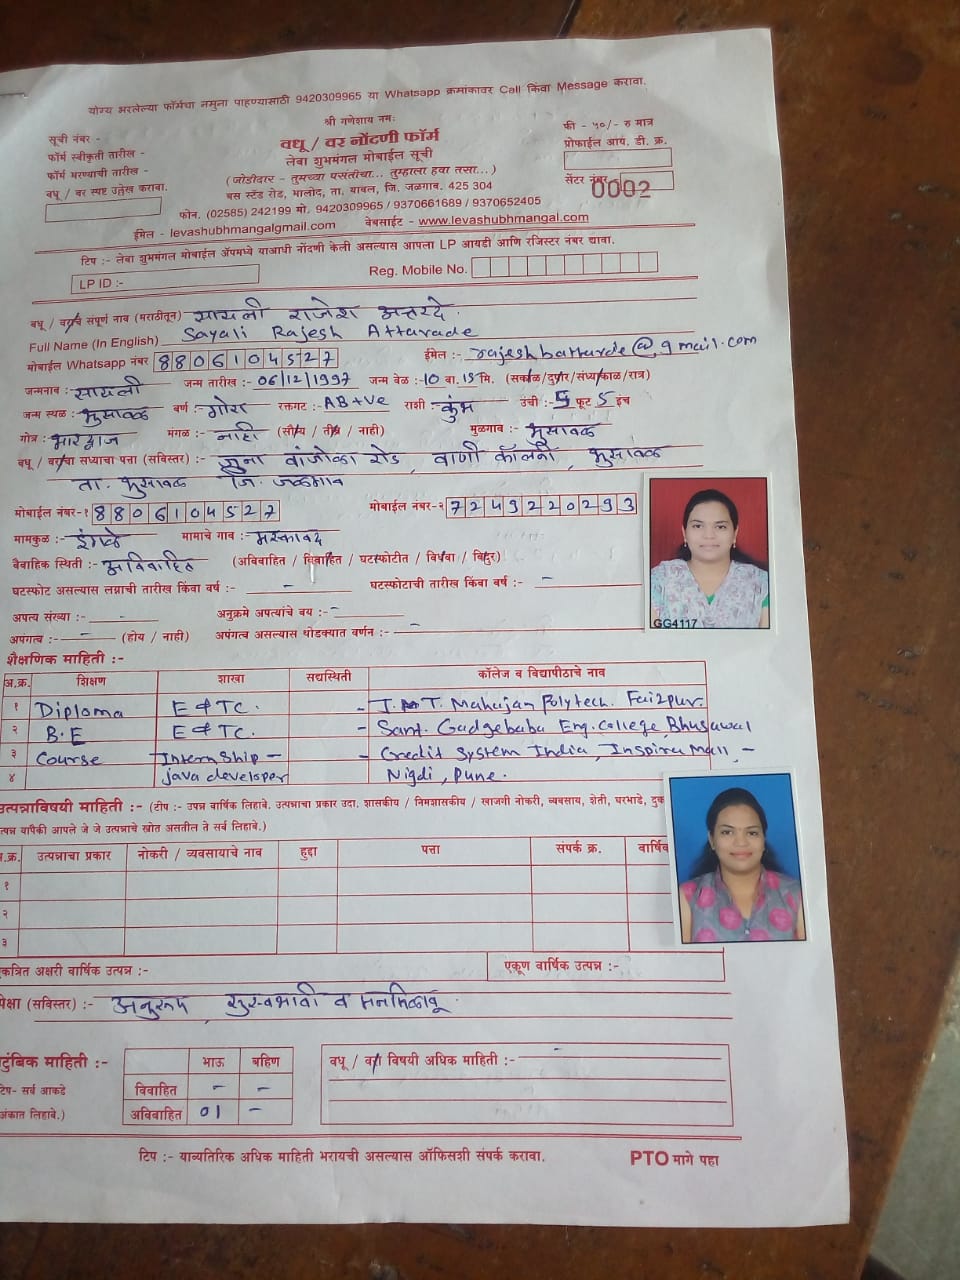 योग्य भरलेल्या फॉर्मचा नमुना पाहण्यासाठी 9420309965 या Whatsapp क्रमांकावर Call किंवा Message करावा.
श्री गणेशाय नमः
सूची नंबर -
वधू / वर नोंदणी फॉर्म
फी - ५०/- रु मात्र
फॉर्म स्वीकृती तारीख -
लेवा शुभमंगल मोबाईल सूची
प्रोफाईल आय. डी. क्र.
फॉर्म भरण्याची तारीख -
(जोडीदार - तुमच्या पसंतीचा... तुम्हाला हवा तसा...)
सेंटर नंबर- 0002
वधू / वर स्पष्ट उल्लेख करावा.
बस स्टँड रोड, भालोद, ता. यावल, जि. जळगाव. 425 304
फोन. (02585) 242199 मो. 9420309965 / 9370661689 / 9370652405
ईमेल - levashubhmangal@gmail.com वेबसाईट - www.levashubhmangal.com
टिप :- लेवा शुभमंगल मोबाईल ॲपमध्ये याआधी नोंदणी केली असल्यास आपला LP आयडी आणि रजिस्टर नंबर द्यावा.
LP ID :- Reg. Mobile No.
वधू / वराचे संपूर्ण नाव (मराठीतून) सायली राजेश अत्तरदे.
Full Name (In English) Sayali Rajesh Attarade
मोबाईल Whatsapp नंबर 8806104527 ईमेल :- rajeshbattarde@gmail.com
जन्मनाव : सायली जन्म तारीख :- 06/12/1997 जन्म वेळ :- 10 वा. 15 मि. (सकाळ/दुपार/संध्याकाळ/रात्र)
जन्म स्थळ : भुसावळ वर्ण :- गोरा रक्तगट :- AB+Ve राशी :- कुंभ उंची :- 5 फूट 5 इंच
गोत्र : भारद्वाज मंगळ :- नाही (सौम्य / तीव्र / नाही) मुळगाव :- भुसावळ
वधू / वराचा सध्याचा पत्ता (सविस्तर) :- जुना वांजोळा रोड, वाणी कॉलनी, भुसावळ
ता. भुसावळ जि. जळगाव
मोबाईल नंबर-१ 8806104527 मोबाईल नंबर-२ 7249220293
मामकुळ :- इंगळे मामाचे गाव :- मस्कावद
वैवाहिक स्थिती :- अविवाहित (अविवाहित / विवाहित / घटस्फोटीत / विधवा / विधुर)
घटस्फोट असल्यास लग्नाची तारीख किंवा वर्ष :- - घटस्फोटाची तारीख किंवा वर्ष :- -
अपत्य संख्या :- - अनुक्रमे अपत्यांचे वय :- -
अपंगत्व :- - (होय / नाही) अपंगत्व असल्यास थोडक्यात वर्णन :- -
GG4117
शैक्षणिक माहिती :-
अ.क्र. शिक्षण शाखा सद्यस्थिती कॉलेज व विद्यापीठाचे नाव
१ Diploma E&TC. - J. T. Mahajan Polytech. Faizpur.
२ B.E E&TC. - Sant. Gadgebaba Eng. College, Bhusawal
३ Course Internship - - Credit System India, Inspira Mall, -
४ java developer Nigdi, Pune.
उत्पन्नाविषयी माहिती :- (टीप :- उपन्न वार्षिक लिहावे. उत्पन्नाचा प्रकार उदा. शासकीय / निमशासकीय / खाजगी नोकरी, व्यवसाय, शेती, घरभाडे, दुक
त्पन्न यापैकी आपले जे जे उत्पन्नाचे स्रोत असतील ते सर्व लिहावे.)
अ.क्र. उत्पन्नाचा प्रकार नोकरी / व्यवसायाचे नाव हुद्दा पत्ता संपर्क क्र. वार्षिक
१
२
३
एकत्रित अक्षरी वार्षिक उत्पन्न :- एकूण वार्षिक उत्पन्न :-
पेक्षा (सविस्तर) :- अनुरूप, सुस्वभावी व मनमिळावू.
टुंबिक माहिती :- भाऊ बहिण
वधू / वरा विषयी अधिक माहिती :- -
टिप- सर्व आकडे विवाहित - -
अंकात लिहावे.) अविवाहित 01 -
टिप :- याव्यतिरिक अधिक माहिती भरायची असल्यास ऑफिसशी संपर्क करावा.
PTO मागे पहा